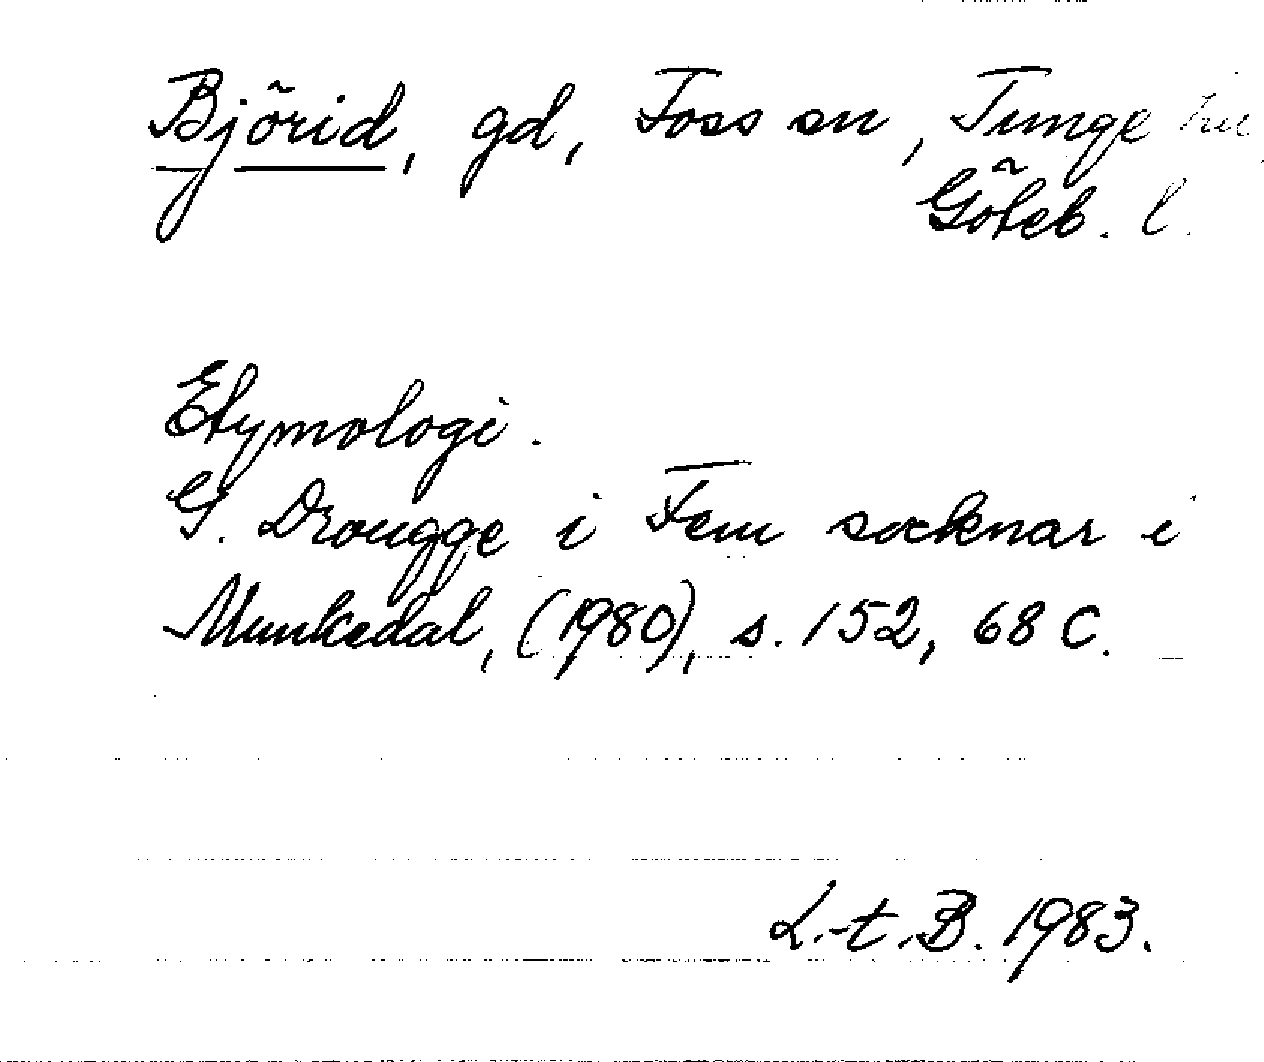 Björid, gd, Foss sn, Tunge hd
Göteb. l.
Etymologi.
G. Drougge i Fem socknar i
Munkedal, (1980), s. 152, 68 C.
L.-t. B. 1983.